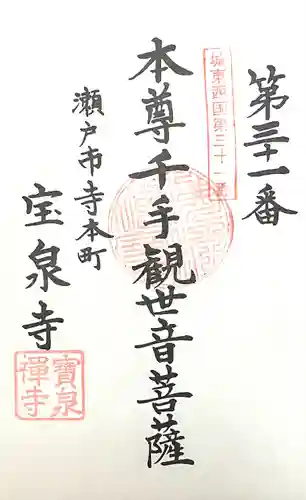 第三十一番
城東西国第三十一番
本尊千手観世音菩薩
瀬戸市寺本町
宝泉寺
寶泉禅寺